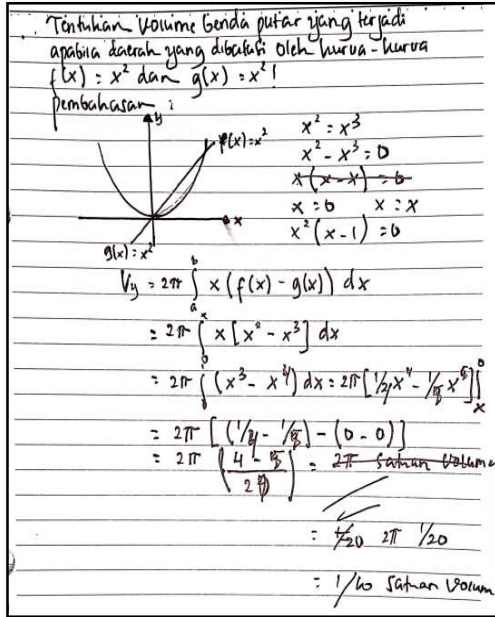 Tentukan Volume benda putar yang terjadi
apabila daerah yang dibatasi oleh kurva-kurva
f(x) = x² dan g(x) = x² !
pembahasan :
y
f(x) = x²
x
g(x) = x²
x² = x³
x² - x³ = 0
x (x - x) = 0
x = 0 x = x
x² (x - 1) = 0
Vy = 2π ∫ₐᵇ x (f(x) - g(x)) dx
= 2π ∫₀ˣ x [x² - x³] dx
= 2π ∫ (x³ - x⁴) dx = 2π [1/4 x⁴ - 1/5 x⁵]
= 2π [(1/4 - 1/5) - (0 - 0)]
= 2π = 2π satuan Volume
= 1/20 2π 1/20
= 1/40 satuan Volum